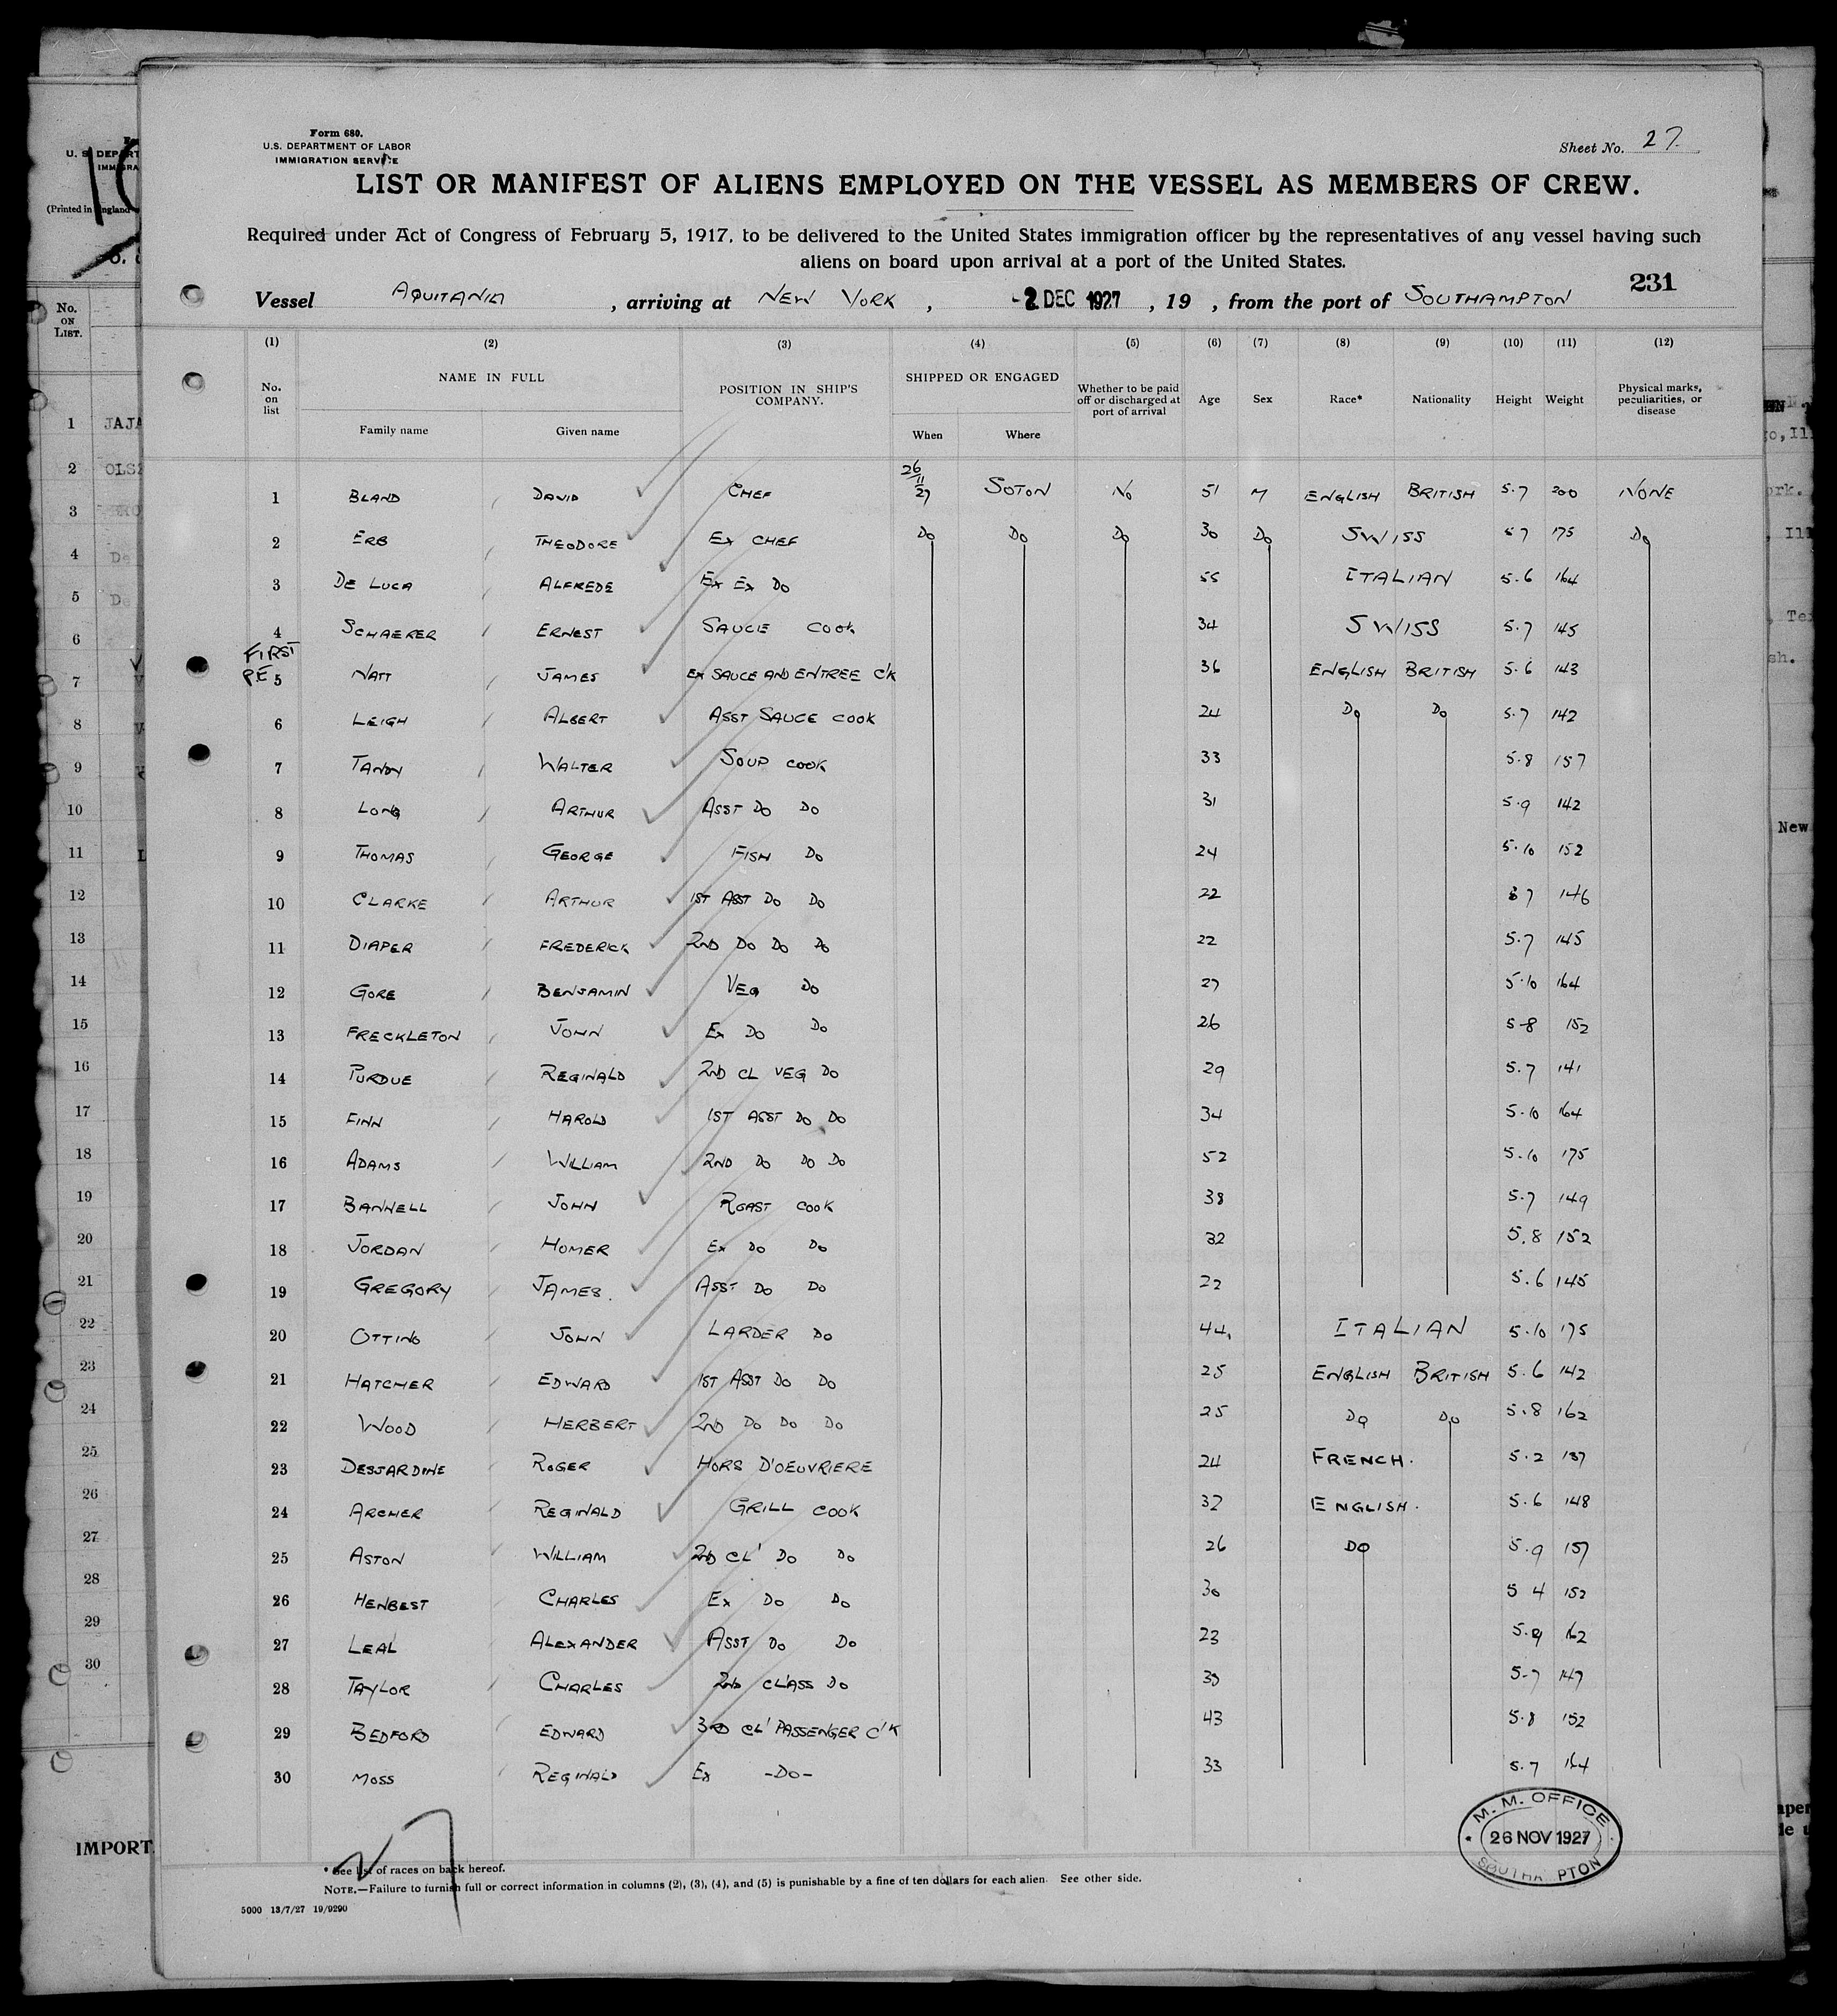 Form 680.
U.S. DEPARTMENT OF LABOR
IMMIGRATION SERVICE
Sheet No. 27.
LIST OR MANIFEST OF ALIENS EMPLOYED ON THE VESSEL AS MEMBERS OF CREW.
Required under Act of Congress of February 5, 1917, to be delivered to the United States immigration officer by the representatives of any vessel having such
aliens on board upon arrival at a port of the United States.
231
Vessel AQUITANIA, arriving at NEW YORK, -2 DEC 1927, 19 , from the port of SOUTHAMPTON
(1) (2) (3) (4) (5) (6) (7) (8) (9) (10) (11) (12)
No. on list NAME IN FULL POSITION IN SHIP'S COMPANY. SHIPPED OR ENGAGED Whether to be paid off or discharged at port of arrival Age Sex Race* Nationality Height Weight Physical marks, peculiarities, or disease
Family name Given name When Where
1 BLAND DAVID CHEF 26/11/27 SOTON No 51 M ENGLISH BRITISH 5.7 200 NONE
2 ERB THEODORE EX CHEF Do Do Do 30 Do SWISS 5 7 175 Do
3 DE LUCA ALFREDE EX EX DO 55 ITALIAN 5.6 164
4 SCHAERER ERNEST SAUCE COOK 34 SWISS 5.7 145
FIRST
P.E 5 NATT JAMES EX SAUCE AND ENTREE C'K 36 ENGLISH BRITISH 5.6 143
6 LEIGH ALBERT ASST SAUCE COOK 24 Do Do 5.7 142
7 TANDY WALTER SOUP COOK 33 5.8 157
8 LONG ARTHUR ASST DO DO 31 5.9 142
9 THOMAS GEORGE FISH DO 24 5.10 152
10 CLARKE ARTHUR 1ST ASST DO DO 22 5 7 146
11 DIAPER FREDERICK 2ND DO DO DO 22 5.7 145
12 GORE BENJAMIN VEG DO 27 5.10 164
13 FRECKLETON JOHN EX DO DO 26 5-8 152
14 PURDUE REGINALD 2ND CL VEG DO 29 5.7 141
15 FINN HAROLD 1ST ASST DO DO 34 5.10 164
16 ADAMS WILLIAM 2ND DO DO DO 52 5.10 175
17 BANNELL JOHN ROAST COOK 38 5.7 149
18 JORDAN HOMER EX DO DO 32 5.8 152
19 GREGORY JAMES. ASST DO DO 22 5.6 145
20 OTTINO JOHN LARDER DO 44. ITALIAN 5.10 175
21 HATCHER EDWARD 1ST ASST DO DO 25 ENGLISH BRITISH 5.6 142
22 WOOD HERBERT 2ND DO DO DO 25 DO DO 5.8 162
23 DESJARDINE ROGER HORS D'OEUVRIERE 24 FRENCH. 5.2 137
24 ARCHER REGINALD GRILL COOK 37 ENGLISH. 5.6 148
25 ASTON WILLIAM 2ND CL' DO DO 26 DO 5.9 157
26 HENBEST CHARLES EX DO DO 30 5 4 152
27 LEAL ALEXANDER ASST DO DO 23 5.9 162
28 TAYLOR CHARLES 2ND CLASS DO 5-7 147
29 BEDFORD EDWARD 3RD CL' PASSENGER C'K 43 5.8 152
30 MOSS REGINALD EX -DO- 33 5.7 164
M. M. OFFICE
26 NOV 1927
SOUTHA PTON
* See list of races on back hereof.
NOTE.—Failure to furnish full or correct information in columns (2), (3), (4), and (5) is punishable by a fine of ten dollars for each alien. See other side.
5000 13/7/27 19/9290